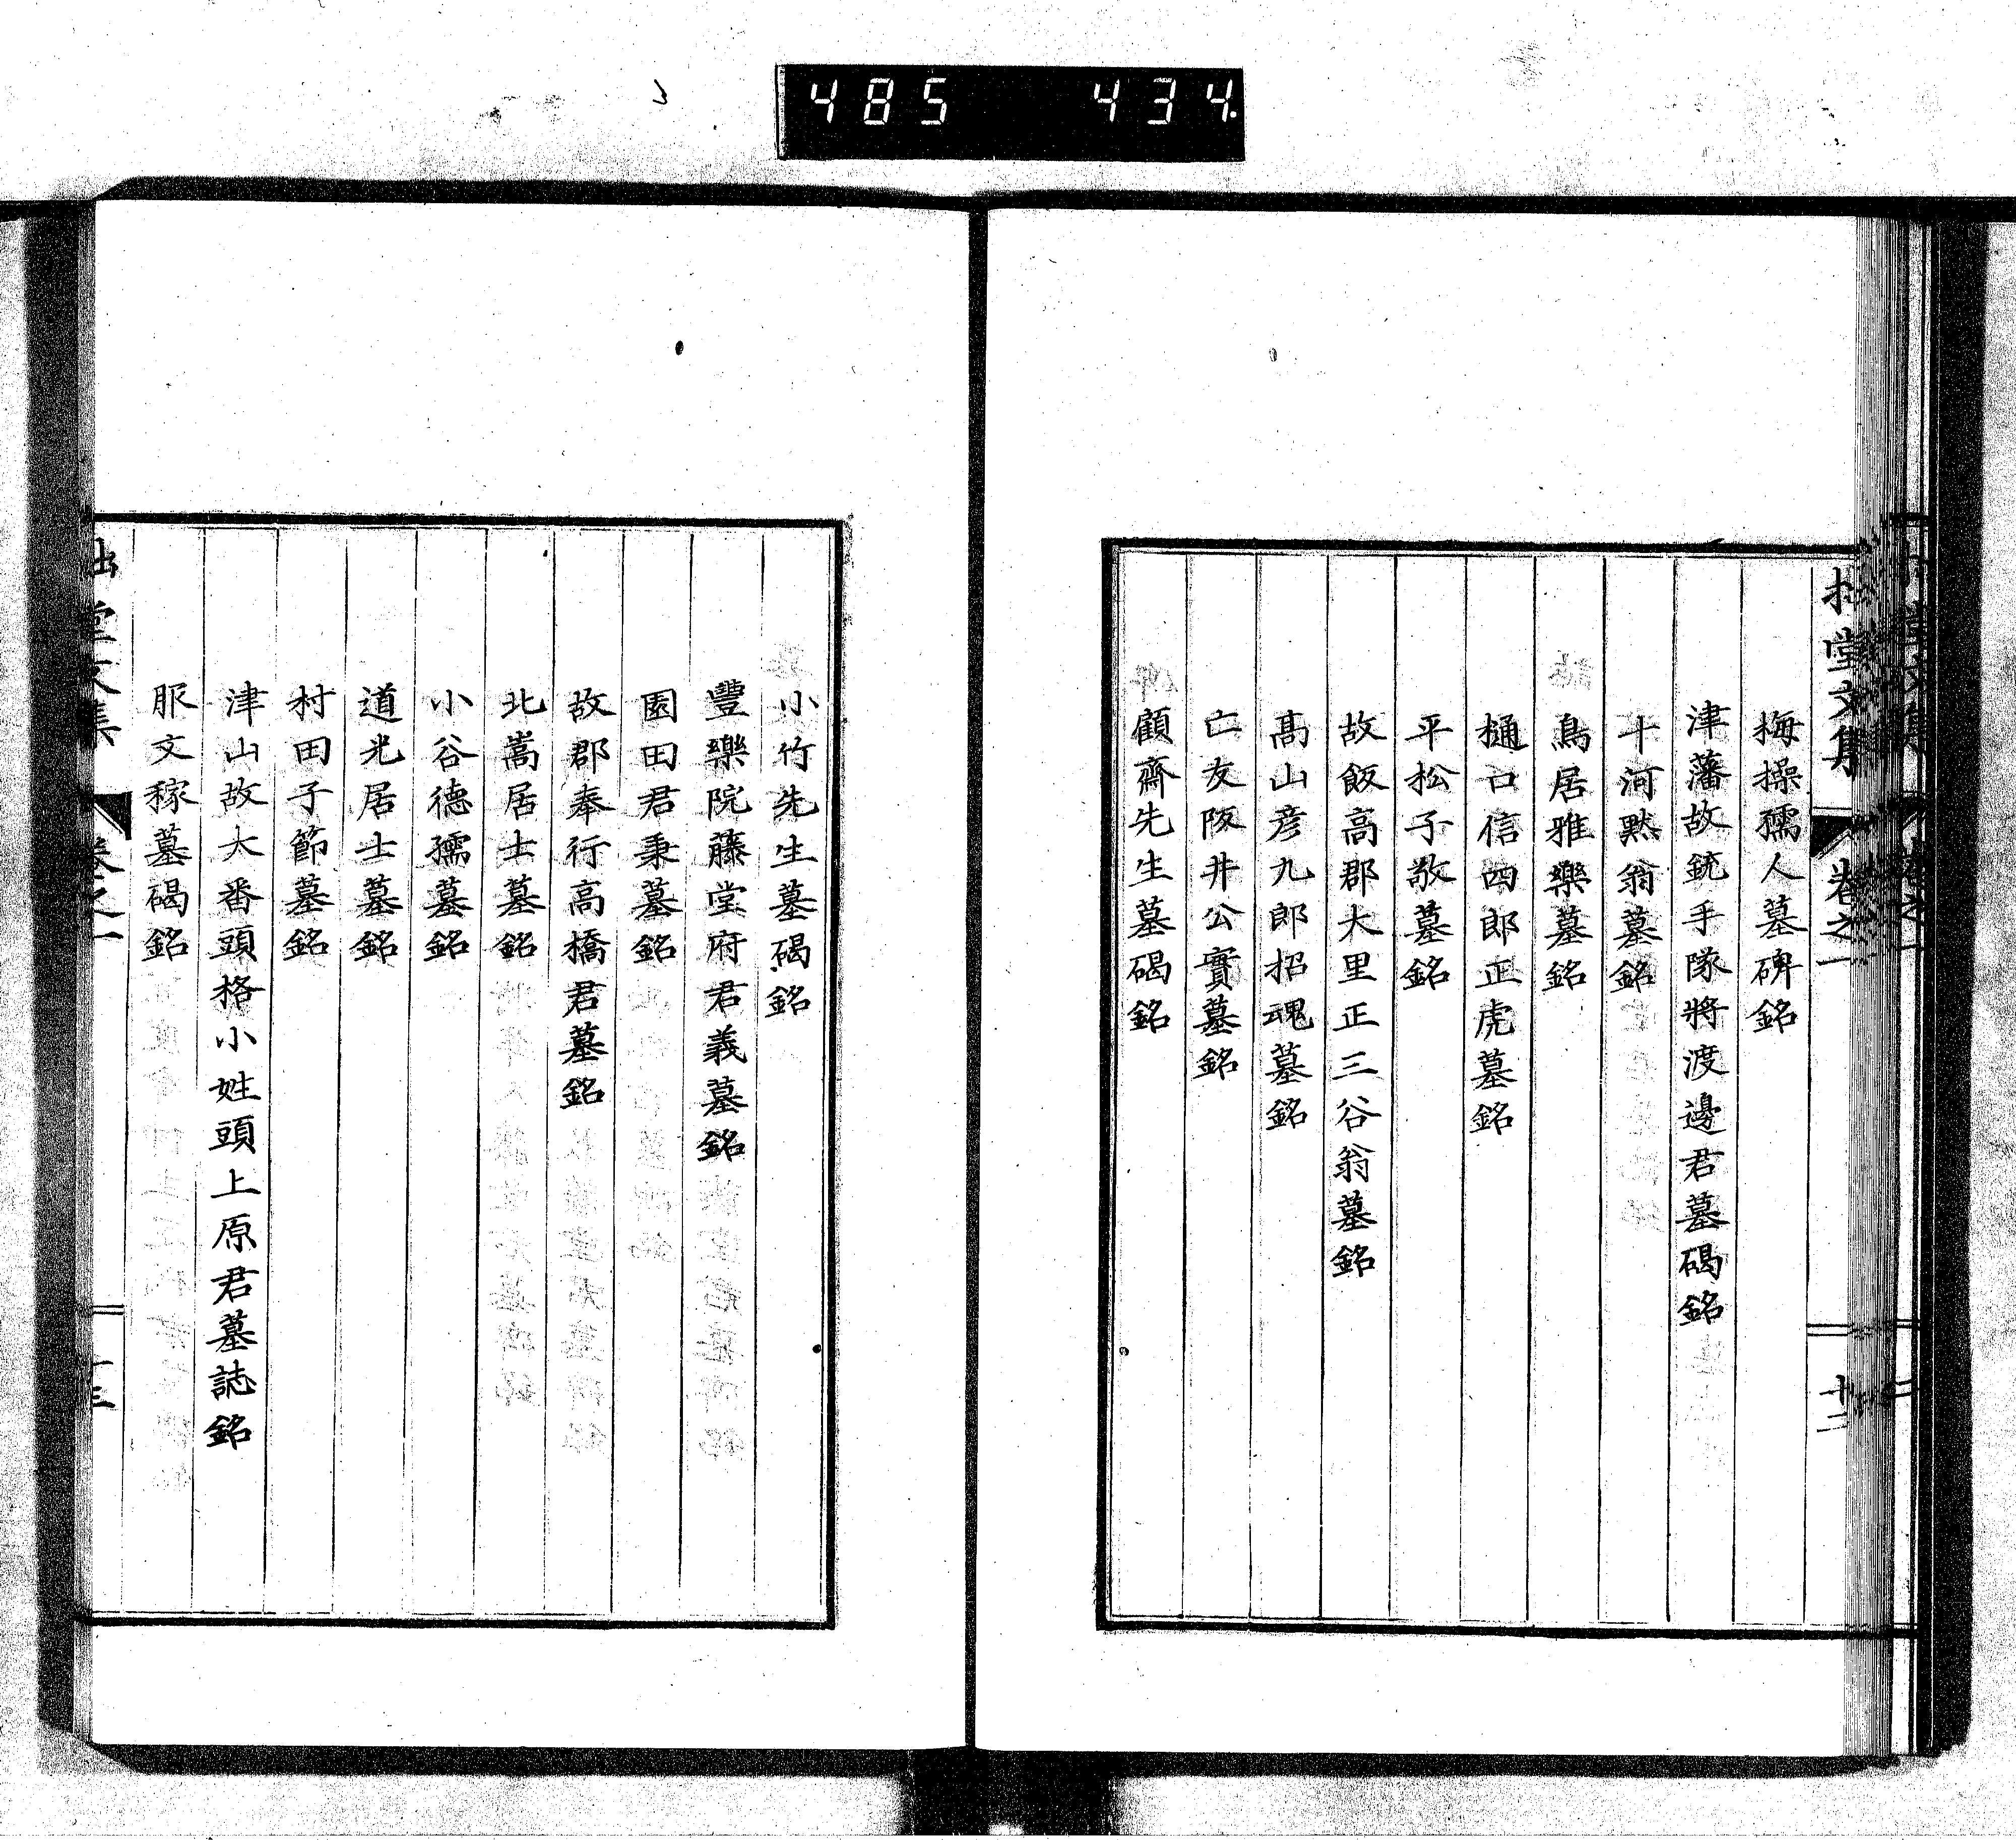 485 434.
拙堂文集 卷之一 十二
梅操孺人墓碑銘
津藩故銃手隊將渡邊君墓碣銘
十河黙翁墓銘
鳥居雅樂墓銘
樋口信四郎正虎墓銘
平松子敬墓銘
故飯高郡大里正三谷翁墓銘
髙山彦九郎招魂墓銘
亡友阪井公實墓銘
顧齋先生墓碣銘
小竹先生墓碣銘
豐樂院藤堂府君義墓銘
園田君秉墓銘
故郡奉行高橋君墓銘
北嵩居士墓銘
小谷德孺墓銘
道光居士墓銘
村田子節墓銘
津山故大番頭格小姓頭上原君墓誌銘
服文稼墓碣銘
拙堂文集 卷之一 十三